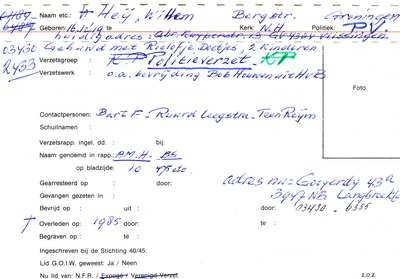 Naam etc.: Heij, Willem Bergstr. Groningen
Geboren: 16.12.19 te Kerk: N.H. Politiek: P.V.
huidig adres: Abr. Kuyperstr. 13 Vlissingen
03430 Gehuwd met Roelofje Deetjes, 2 kinderen
2433 Verzetsgroep : K.P. Politieverzet. KP
Verzetswerk : o.a. bevrijding Bob Houwen uit HvB
Foto
Contactpersonen: Bart F - Ruurd Leegstra - Teun Reijm
Schuilnamen :
Verzetsrapp, ingel. dd. : bij:
Naam genoemd in rapp.: A.M.H. - BS
op bladzijde: 10
Gearresteerd op : door: adres nu = Gooyerdy 43a
Gevangen gezeten in : 3947 NB Langbroek
Bevrijd op : uit : door: 03430 - 6355
† Overleden op : 1985 door: te :
Begraven op : te :
Ingeschreven bij de Stichting 40/45:
Lid G.O.I.W. geweest: Ja / Neen
Nu lid van: N.F.R. / Expogé / Verenigd Verzet z.o.z.